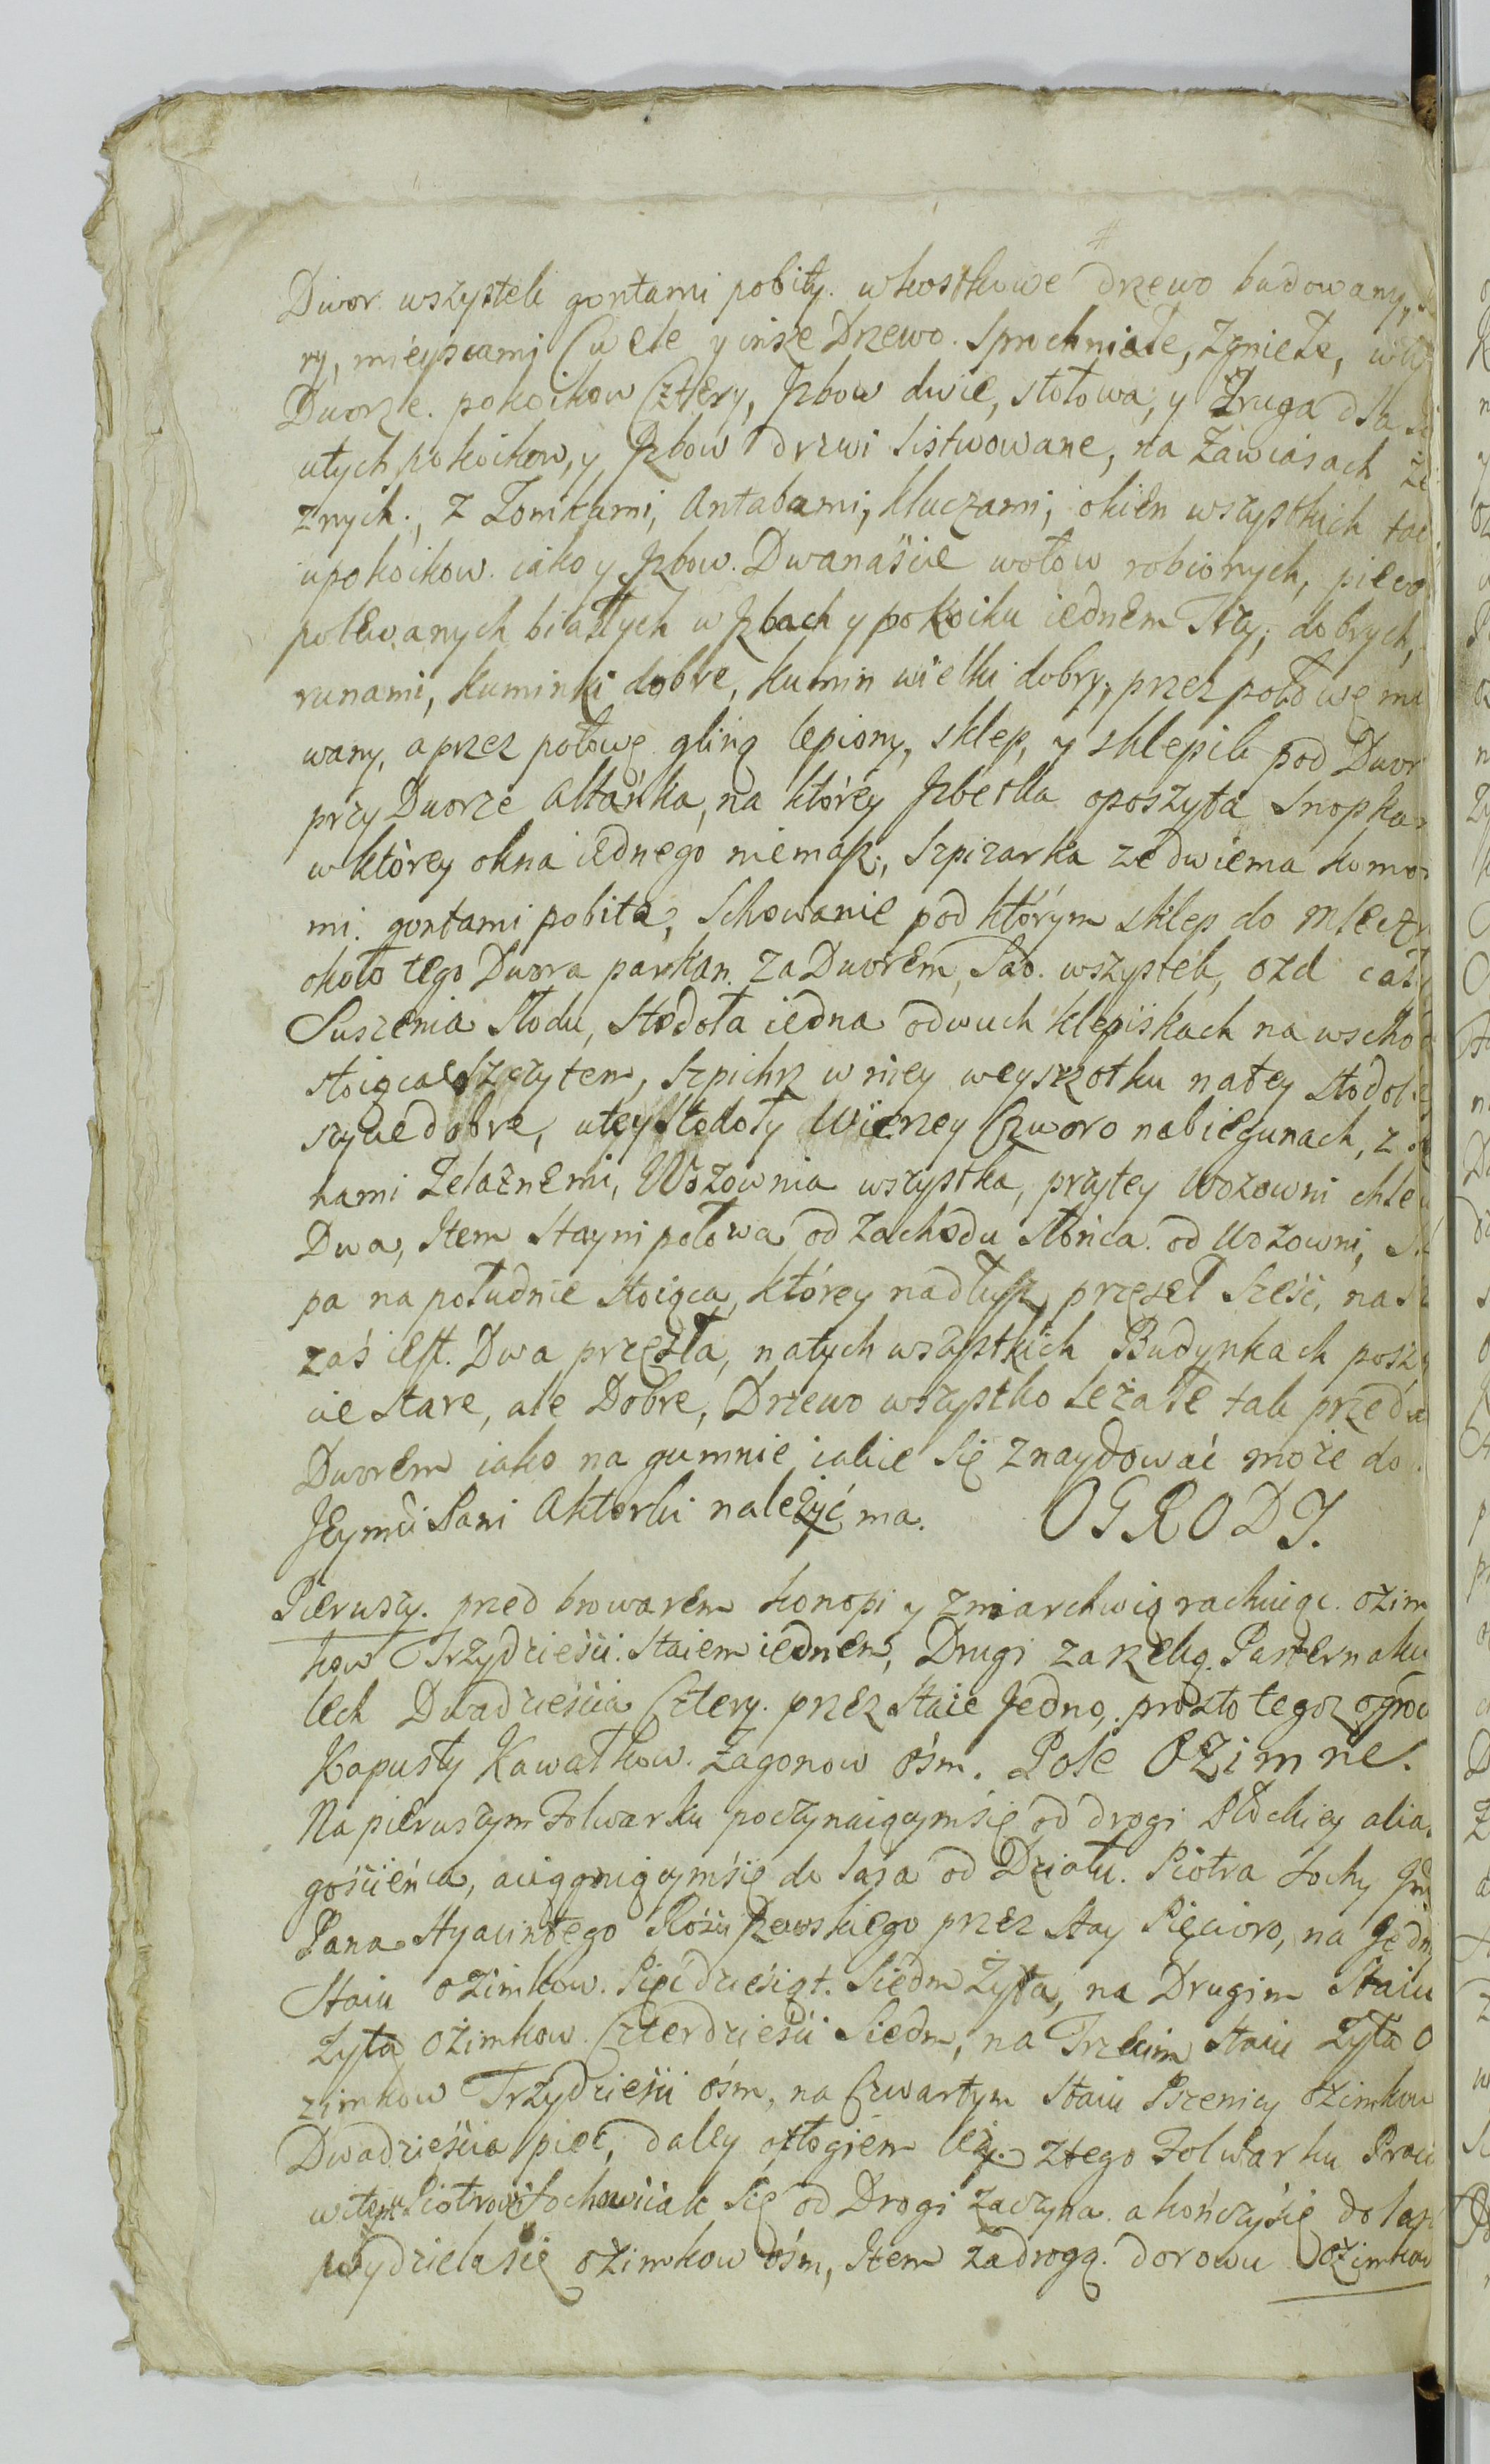 Dwor wszystek gontami pobity. wkostkowe drzewo budowany,
ry, mieyscami Cwele y insze Drzewo. Sprochniałe, Zgniełe,
Dworze. pokoikow Cztery, Jzbow dwie, stołowa, y Druga dla
utych pokoikow, y Jzbow drzwi listwowane, na zawiasach że
znych., z Zomkami, Antabami, kluczami, okien wszystkich tak
upokoikow. iako y Jzbow. Dwanaście wołow robionych, piecow
polewanych białych w Jzbach y pokoiku iednem Trzy, dobrych,
runami, kuminki dobre, kumin wielki dobry, przez połowę mu
wany, a przez połowę gliną lepiony, sklep, y sklepik pod Dwor
przy Dworze Altańka, na którey Jzbetka oposzyta Snopka
w którey okna iednego niemasz., Szpizarka ze dwiema komor
mi. gontami pobita, Schowanie pod którym sklep do mlecz
około tego Dwora parkan. za Dworem, Sad. wszystek, ozd cał
Suszenia Słodu, Stodoła iedna odwuch klepiskach na wscho
stoiąca Szczytem, Szpichrz w niey weyszrotku natey stódol
szycie dobre, utey Stodoły Wierzey Czworo nabiegunach, z
kami Zelaznemi, Wozownia wszystka, przytey Wozowni chle
Dwa, Item Stayni połowa od zachodu Słońca. od Wozowni,
pa na południe stoiąca, którey nadłusz przęseł Sześć, na
zaś iest. Dwa przęsła, natych wszystkich Budynkach poszy
cie stare, ale Dobre, Drzewo wszystko leżałe tak przed
Dworem iako na gumnie, iakie się znaydować może do
Jeymći Pani Aktorki należyć ma. OGRODY.
Pierwszy. przed browarem konopi y zmarchwią rachuiąc. ozim
kow Trzydzieści. Staiem iednem, Drugi zarzeką. Pasternaku
lech Dwadzieścia Cztery. przez Staie Jedno, prosto tegoz ogrod
Kapusty Kawałkow. zagonow óśm. Pole Ozimne.
Na pierwszym Folwarku poczynaiącymsię od drogi Płockiey alia
gościeńca, aciągnącymsię do lasa od Działu. Piotra Sochy
Pana Hyacintego Kościszewskiego przez Stay Pięcioro, na Jedn
Staiu ozimkow. Pięćdziesiąt. Siedm Zyta, na Drugim Staiu
Zyta ozimkow. Czterdzieści Siedm, na Trzecim Staiu Zyta O
zimkow Trzydzieści óśm, na Czwartym Staiu Pszenicy ozimkow
Dwadzieścia pięć, daley odłogiem leży. ztego Folwarku Praco
witemu Piotrowi Sochowi iak się od Drogi zaczyna. a kończysię do las
wydziela się ozimkow óśm, Item zadrogą. dorowu Ozimkow